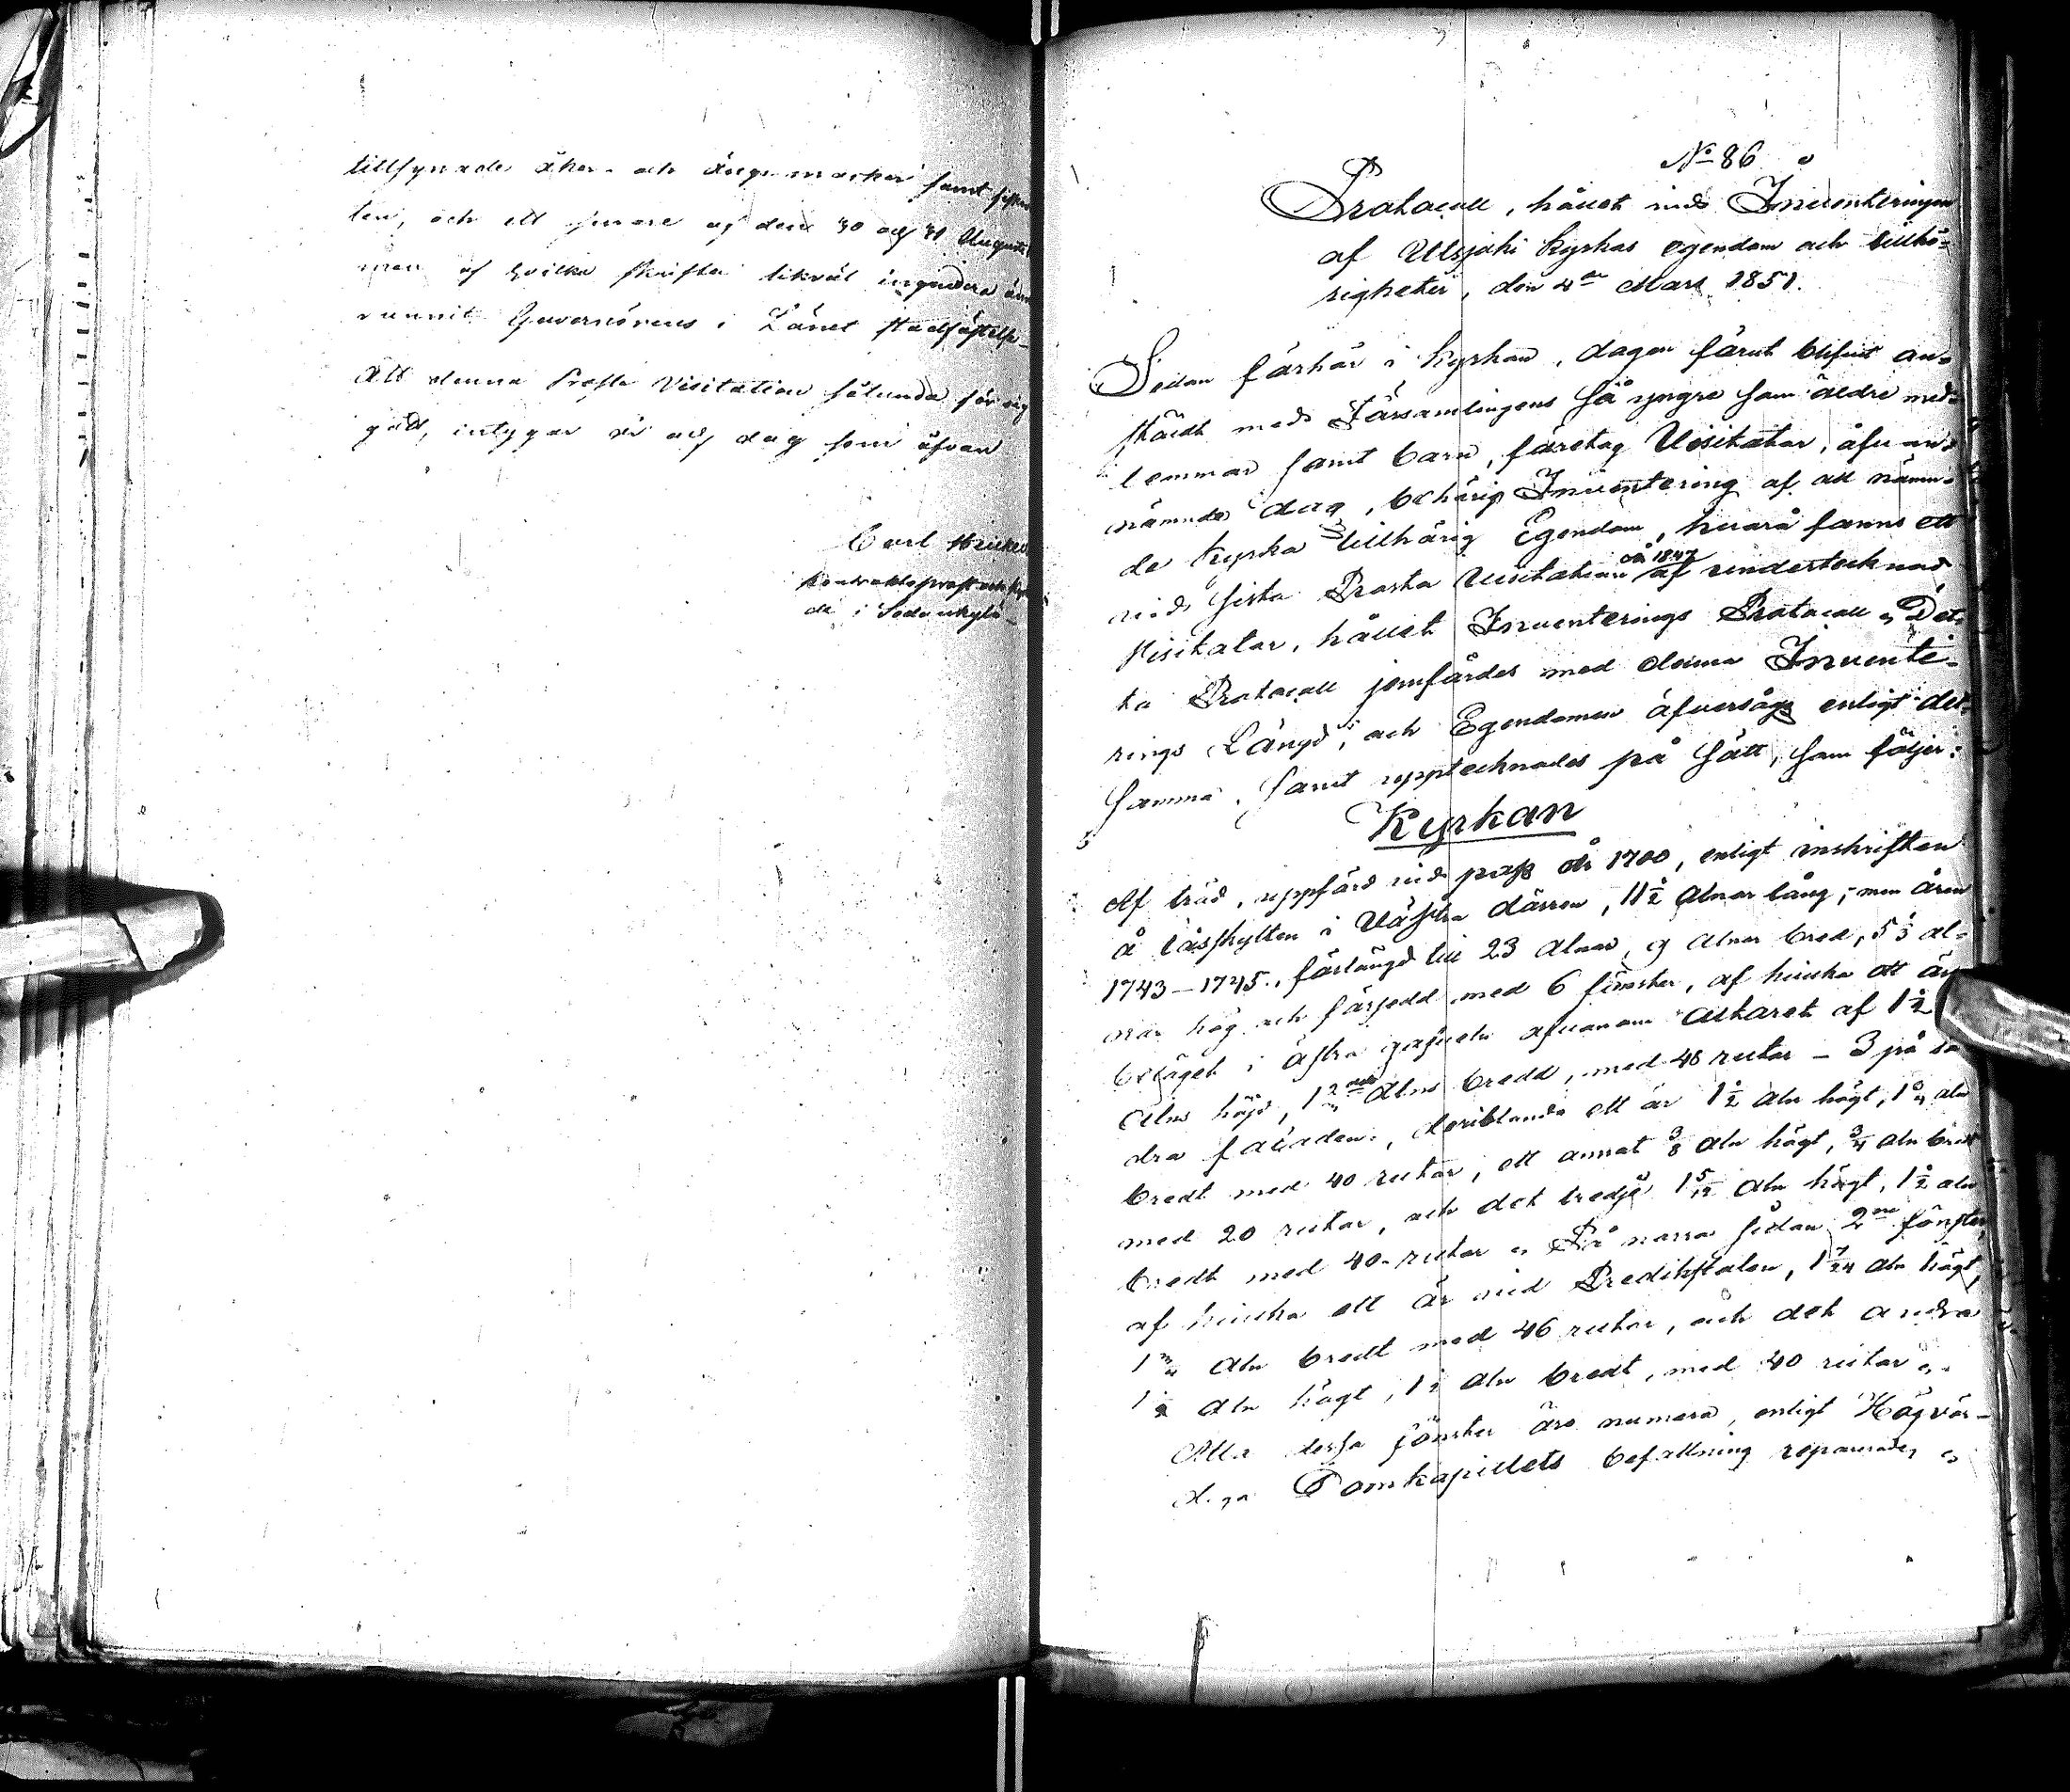 tillsynade åker- och ängsmarker samt
ten, och ett senare af den 30 och 31 Augusti
men af hvilka skrifter likväl ingendera
vunnit Guvernörens i Länet stadfästelse_
Att denna Prosta Visitation sålunda för sig
gått, intygar år och dag som ofvan
Carl
Kontraktsprost och
de i Sodankylä_
No 86
Protocoll, hållet vid Inventeringen
af Utsjoki Kyrkas egendom och tillhö-
righeter, den 4de Mars 1851.
Sedan förhör i Kyrkan, dagen förut blifvit an-
stäldt med Församlingens så yngre som äldre med-
lemmar samt barn, företog Visitator, ofvan-
nämnde dag, behörig Inventering af all nämn-
de Kyrka tillhörig Egendom, hvarå fanns ett
vid sista Prosta Visitation år 1847 af undertecknad
Visitator, hållet Inventerings Protocoll. Det-
ta Protocoll jemfördes med denna Invente-
rings Längd, och Egendomen öfversågs enligt det-
samma, samt upptecknades på sätt, som följer:
Kyrkan
Af träd, uppförd vid pass år 1700, enligt inskriften
å låsskylten i Västra dörren, 11½ alnar lång; men åren
1743–1745, förlängd till 23 alnar, 9 alnar bred, 5⅓ al-
nar hög och försedd med 6 fönster, af hvilka ett är
beläget i östra gafveln ofvanom altaret af 1½
Alns höjd, 1 alns bredd, med 48 rutor – 3 på sö
dra facaden, deribland ett är 1½ aln högt, 1¼ aln
bredt med 40 rutor, ett annat ⅜ aln högt, ¾ aln bredt
med 20 rutor, och det tredje 1 5/12 aln högt, 1½ aln
bredt med 40 rutor. På norra sidan 2ne fönster,
af hvilka ett är vid Predikstolen, 1 7/24 aln högt,
1 aln bredt med 46 rutor, och det andra
1½ aln högt, 1 aln bredt, med 40 rutor.
Alla dessa fönster äro numera, enligt Högvör-
diga Domkapitlets befallning reparerade.